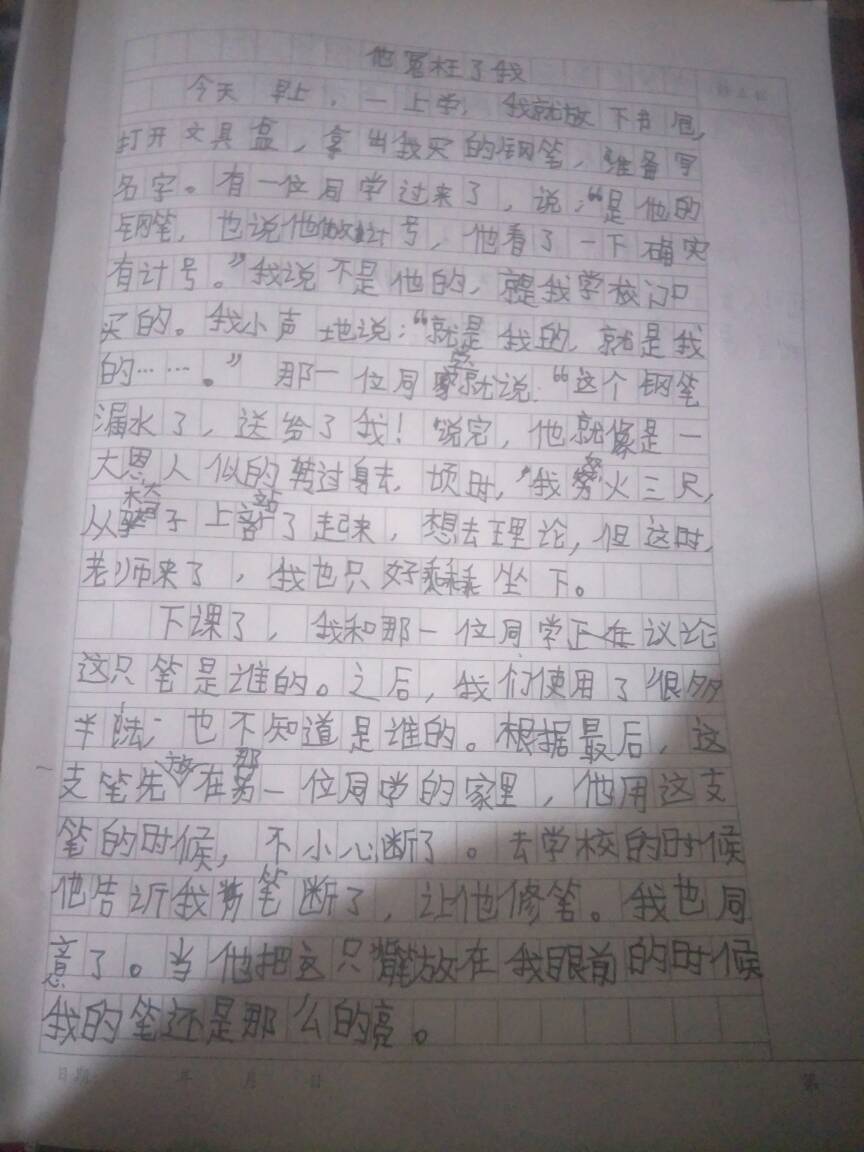 他冤枉了我
今天早上，一上学，我就放下书包，
打开文具盒，拿出我买的钢笔，准备写
名字。有一位同学过来了，说：“是他的
钢笔，也说他做计号，他看了一下确实
有计号。”我说不是他的，就是我学校门口
买的。我小声地说：“就是我的，就是我
的……。”那一位同学就说：“这个钢笔
漏水了，送给了我！说完，他就像是一
大恩人似的转过身去，顷时，“我怒火三尺，
从椅子上站了起来，想去理论，但这时，
老师来了，我也只好乖乖坐下。
下课了，我和那一位同学正在议论
这只笔是谁的。之后，我们使用了很多
半法；也不知道是谁的。根据最后，这
支笔先放在那一位同学的家里，他用这支
笔的时候，不小心断了。去学校的时候
他告诉我笔断了，让他修笔。我也同
意了。当他把这只笔放在我眼前的时候
我的笔还是那么的亮。
日期： 年 月 日 第